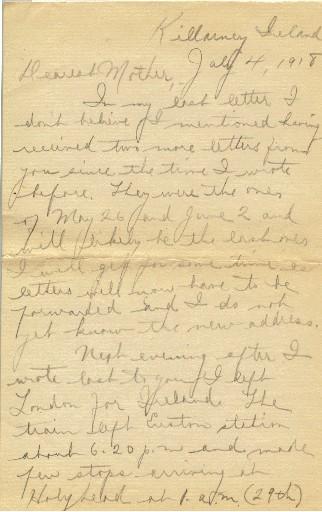 Killarney Ireland
July 4, 1918
Dearest Mother,
In my last letter I
don't believe I mentioned having
received two more letters from
you since the time I wrote
before. They were the ones
of May 26 and June 2 and
will likely be the last ones
I will get for some time as
letters will now have to be
forwarded and I do not
yet know the new address.
Next evening after I
wrote last to you I left
London for Ireland. The
train left Euston station
about 6.20 p.m. and made
few stops arriving at
Holyhead at 1. a.m. (29th)